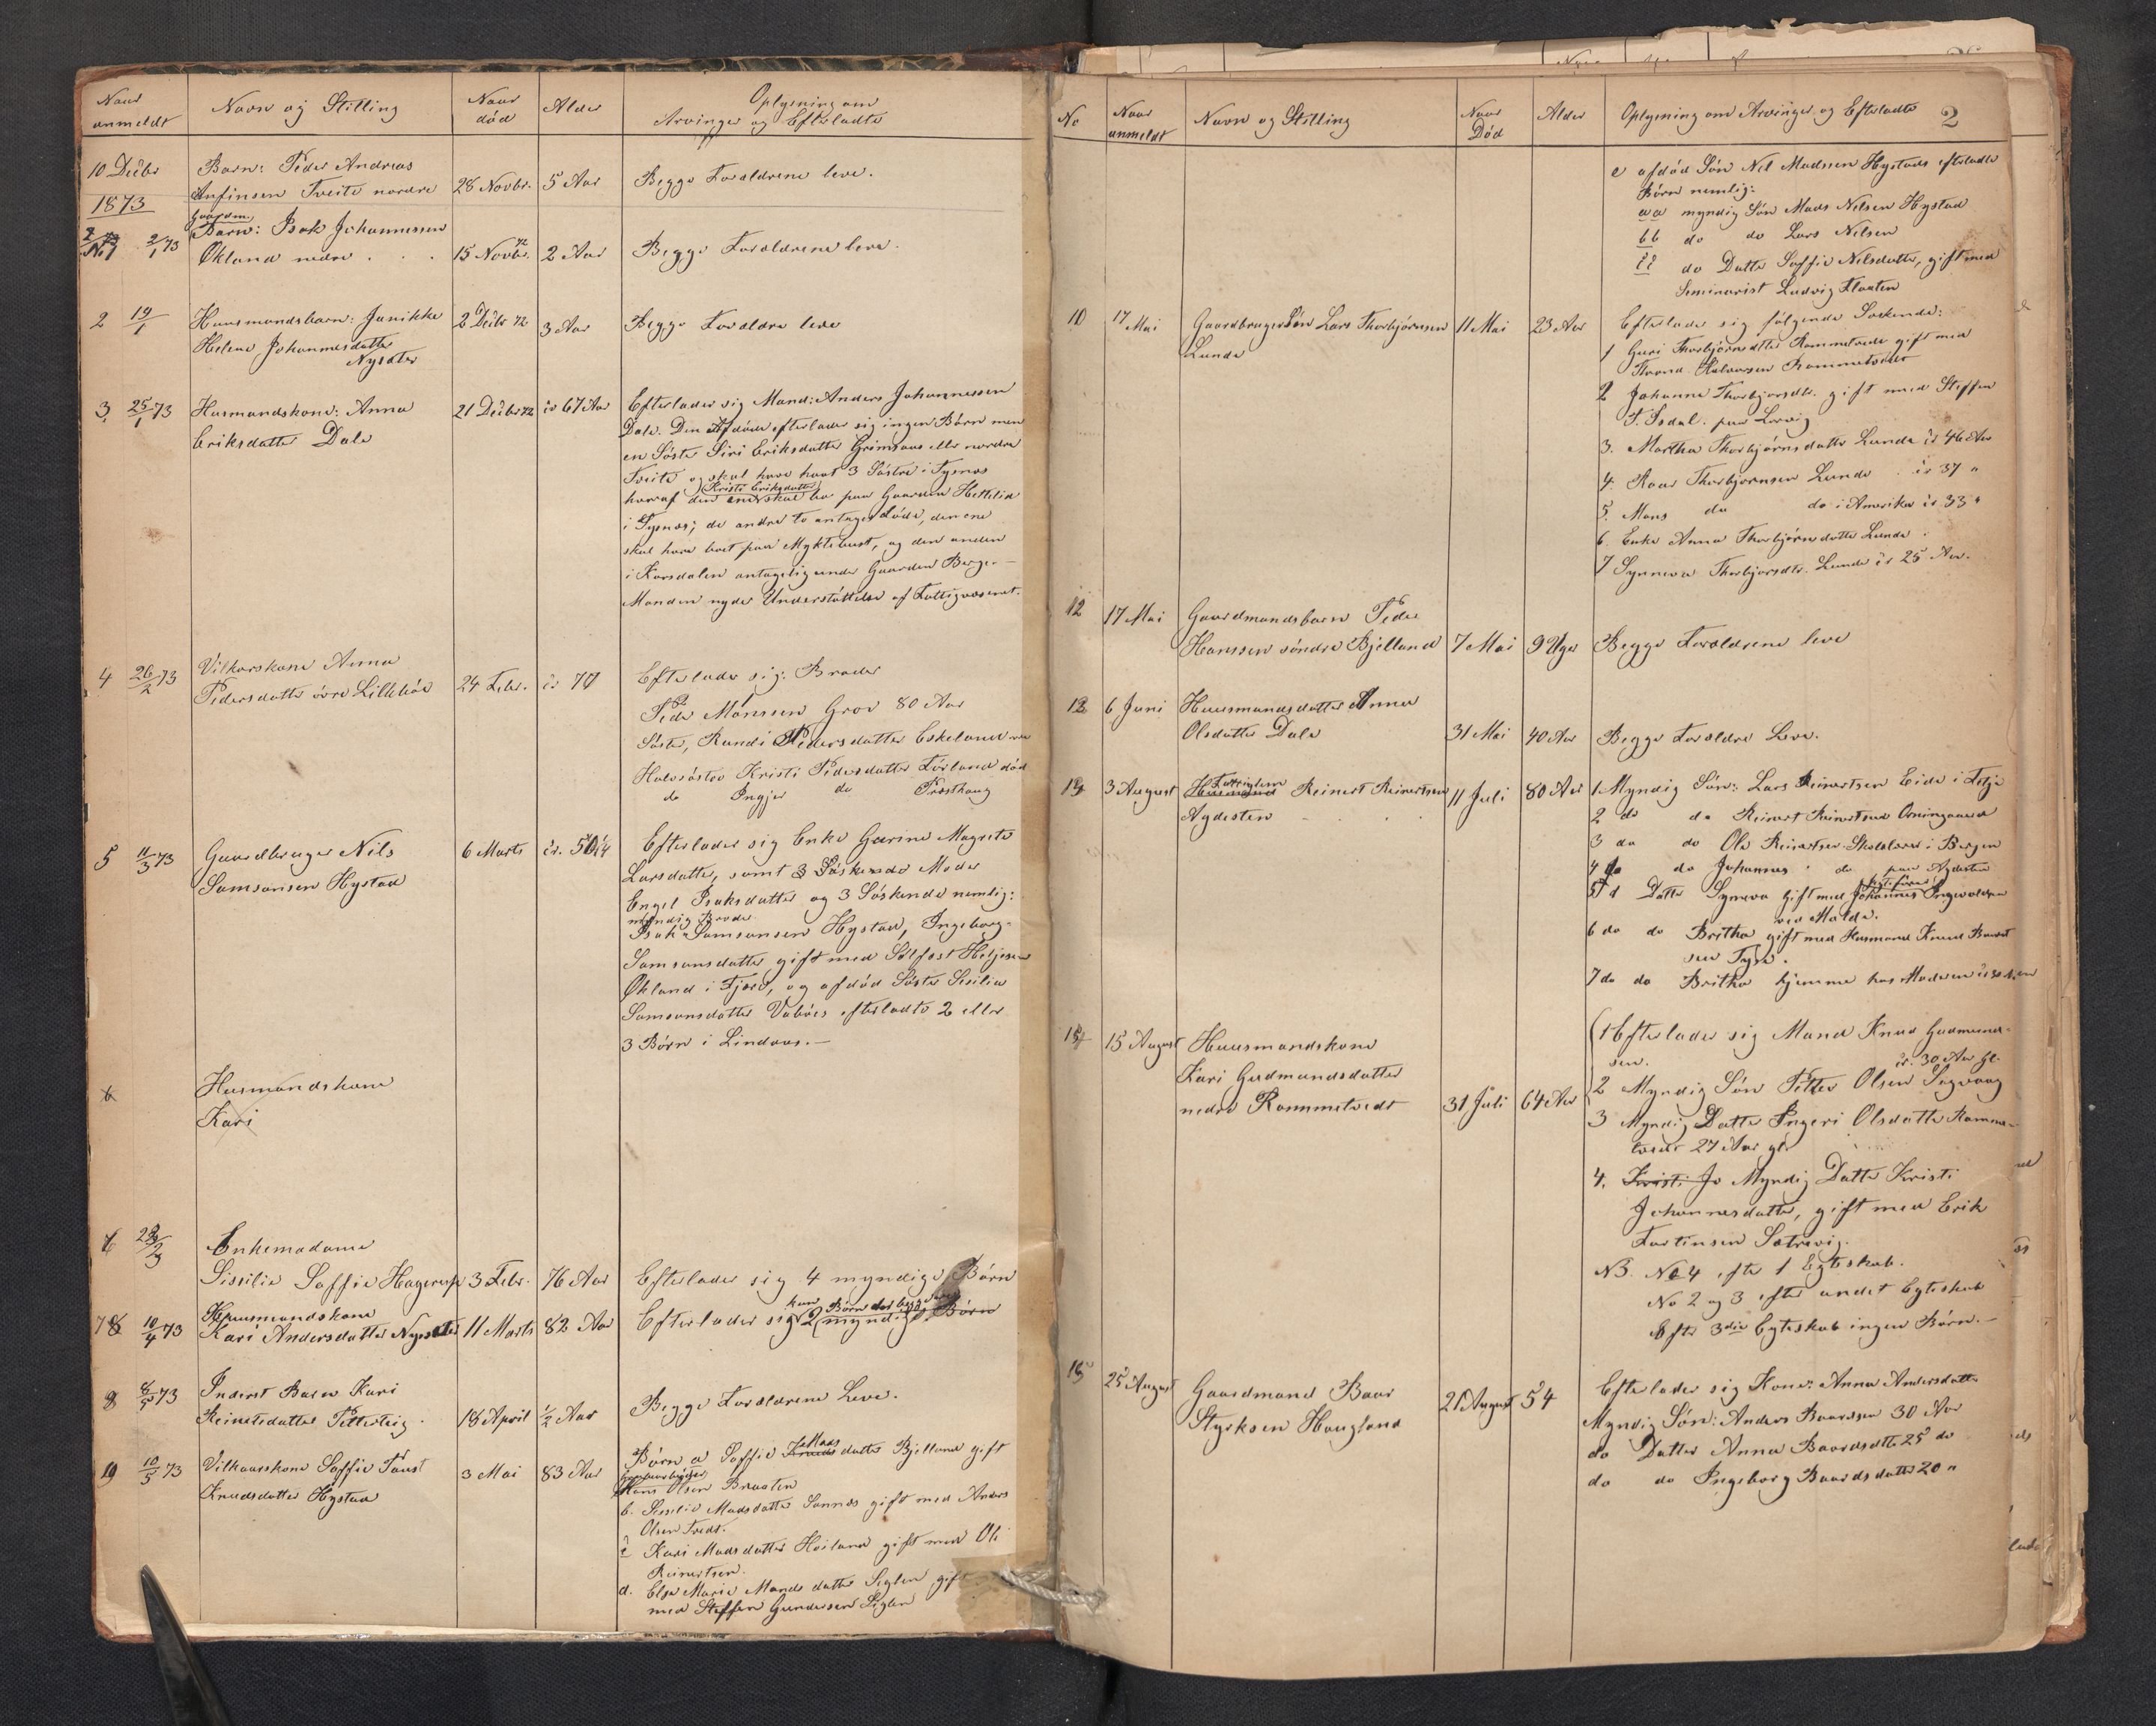 Naar anmeldt
Navn og Stilling
Naar død
Alder
Oplysning om Arvinger og Efterladte
10 Decbr
Barn: Peder Andreas
Anfinsen Tveite nordre
28 Novbr.
5 Aar
Begge Forældrene leve.
1873
2/1 73
Gaardm.
Barn: Isak Johannessen
Økland nedre
15 Novbr. 72
2 Aar
Begge Forældrene leve.
2
19/1
Huusmandsbarn: Janikke
Helene Johannesdatter
Nysæter
2 Decbr 72
3 Aar
Begge Forældre leve
3
25/1 73
Husmandskone: Anna
Eriksdatter Dale
21 Decbr 72
67 Aar
Efterlader sig Mand: Anders Johannessen
Dale. Den Afdøde efterlader sig ingen Børn men
en Søster Siri Eriksdatter Grimsaas eller nordre
Tveite og skal have havt 3 Søstre i Tysnæs
Kristi Eriksdatter
hvoraf den ene skal bo paa Gaarden Hettelid
i Tysnæs; de andre to antages døde, den ene
skal have boet paa Myklebust, og den anden
i Korsdalen antagelig under Gaarden Berge. —
Manden nyder Understøttelse af Fattigvæsenet.
4
26/2 73
Vilkarskone Anna
Pedersdatter øvre Lillebøe
24 Febr.
77
Efterlader sig: Broder
Peder Månssen Grov 80 Aar
Søster, Randi Pedersdatter Eskeland
Halvsøster Kristi Pedersdatter Førland død
do Ingjer do Træsthaug
5
11/3 73
Gaardbruger Nils
Samsonsen Hystad
6 Marts
Efterlader sig Enke Gurine Magrete
Larsdatter, samt Moder
Engel Isaksdatter og 3 Søskende nemlig:
myndig Broder
Isak Samsonsen Hystad, Ingeborg
Samsonsdatter gift med Sølfæst Heljesen
Økland i Fjære, og afdød Søster Sesilia
Samsonsdatter Vabøes efterladte 2 eller
3 Børn i Lindaas. —
6
Husmandskone
Kari
6
Enkemadame
Sissilie Soffie Hagerup
3 Febr.
76 Aar
Efterlader sig 4 myndige Børn
7
10/4 73
Huusmandskone
Kari Andersdatter Nysæter
11 Marts
82 Aar
Efterlader sig 2 myndige Børn
8
8/5 73
Inderst Barn Kari
Reinertsdatter Petterteig
18 April
1/2 Aar
Begge Forældrene Leve.
9
10/5 73
Vilkaarskone Soffie Faust
Knudsdatter Hystad
3 Mai
83 Aar
Mads
Børn a Soffie datter Bjelland gift
Hans Olsen Braaten
b. Sesilie Madsdatter Sannes gift med Anders
Olsen Tvedt.
c Kari Madsdatter Høiland gift med Ole
Reinertsen.
d. Else Marie Mands datter Siglen gift
med Steffen Gundersen Siglen
No
Naar anmeldt
Navn og Stilling
Naar Død
Alder
Oplysning om Arvinger og Efterladte
2
e afdød Søn Nil Madssen Hystads efterladte
Børn nemlig:
aa myndig Søn Mads Nilsen Hystad
bb do do Lars Nilsen
cc do Datter Soffie Nilsdatter, gift med
Seminarist Ludvig Flaaten
10
17 Mai
Gaardbruger Søn Lars Thorbjørnsen
Lunde
11 Mai
23 Aar
Efterlader sig følgende Søskende:
1 Guri Thorbjørnsdtter Rommetvedt gift med
Trond Halvorsen Rommetvedt
2 Johanne Thorbjørnsdtr. gift med Steffen
T. Isdal.
3. Martha Thorbjørnsdatter Lunde 46 Aar
4. Roar Thorbjørnsen Lunde 37 "
5. Mons do do i Amerika 33 "
6. Enke Anna Thorbjørnsdatter Lunde
7 Synneva Thorbjørnsdtr. Lunde 25 Aar.
12
17 Mai
Gaardmandsbarn Peder
Hanssen søndre Bjelland
7 Mai
9 Uger
Begge Forældrene leve
12
6 Juni
Huusmandsdatter Anna
Olsdatter Dale
31 Mai
40 Aar
Begge Forældre Leve.
13
3 August
Fattiglem
Reinert Reinertsen
Agdesten
11 Juli
80 Aar
1 Myndig Søn: Lars Reinertsen Eide i Fitje
2 do do Reinert Reinertsen
3 do do Ole Reinertsen Skolelærer i Bergen
4 do do Johannes do paa Agdesten
5 d Datter Syneva gift med Johannes Ingevaldsen
ved Molde.
6 do do Britha gift med Husmand Knud
sen Tyse.
7 do do Britha hjemme hos Moderen
15 August
Huusmandskone
Kari Gudmundsdatter
nedre Rommetvedt
31 Juli
64 Aar
1 Efterlader sig Mand Knud Gudmund-
sen.
30 Aar gl.
2 Myndig Søn Petter Olsen Sagvaag
3 Myndig Datter Ingeri Olsdatter Romme-
tvedt 27 Aar gl
4. Kristi Jo Myndig Datter Kristi
Johannesdatter, gift med Erik
Sætrevig.
NB. No 4 efter 1 Egteskab.
No 2 og 3 efter andet Egteskab
Efter 3die Egteskab ingen Børn. —
15
25 August
Gaardmand Baar
Styrksen Haugland
21 August
54
Efterlader sig Kone: Anna Andersdatter
Myndig Søn: Anders Baardsen 30 Aar
do Datter Anna Baardsdtter 25 do
do do Ingeborg Baardsdatter 20 "